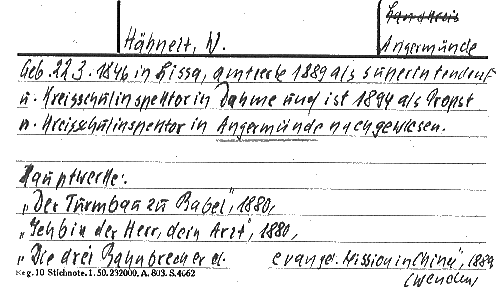 Landkreis
Hähnelt, W.
Angermünde
Geb. 22.3.1846 in Lissa, amtierte 1889 als Superintendent
u. Kreisschulinspektor in Dahme und ist 1894 als Propst
u. Kreisschulinspektor in Angermünde nachgewiesen.
Hauptwerke:
„Der Turmbau zu Babel", 1880,
„Ich bin der Herr, dein Arzt", 1880,
„Die drei Bahnbrecher d. evangel. Mission in China", 1889
(wenden)
Reg. 10 Stichnote. 1. 50. 232000. A. 803. S. 4662